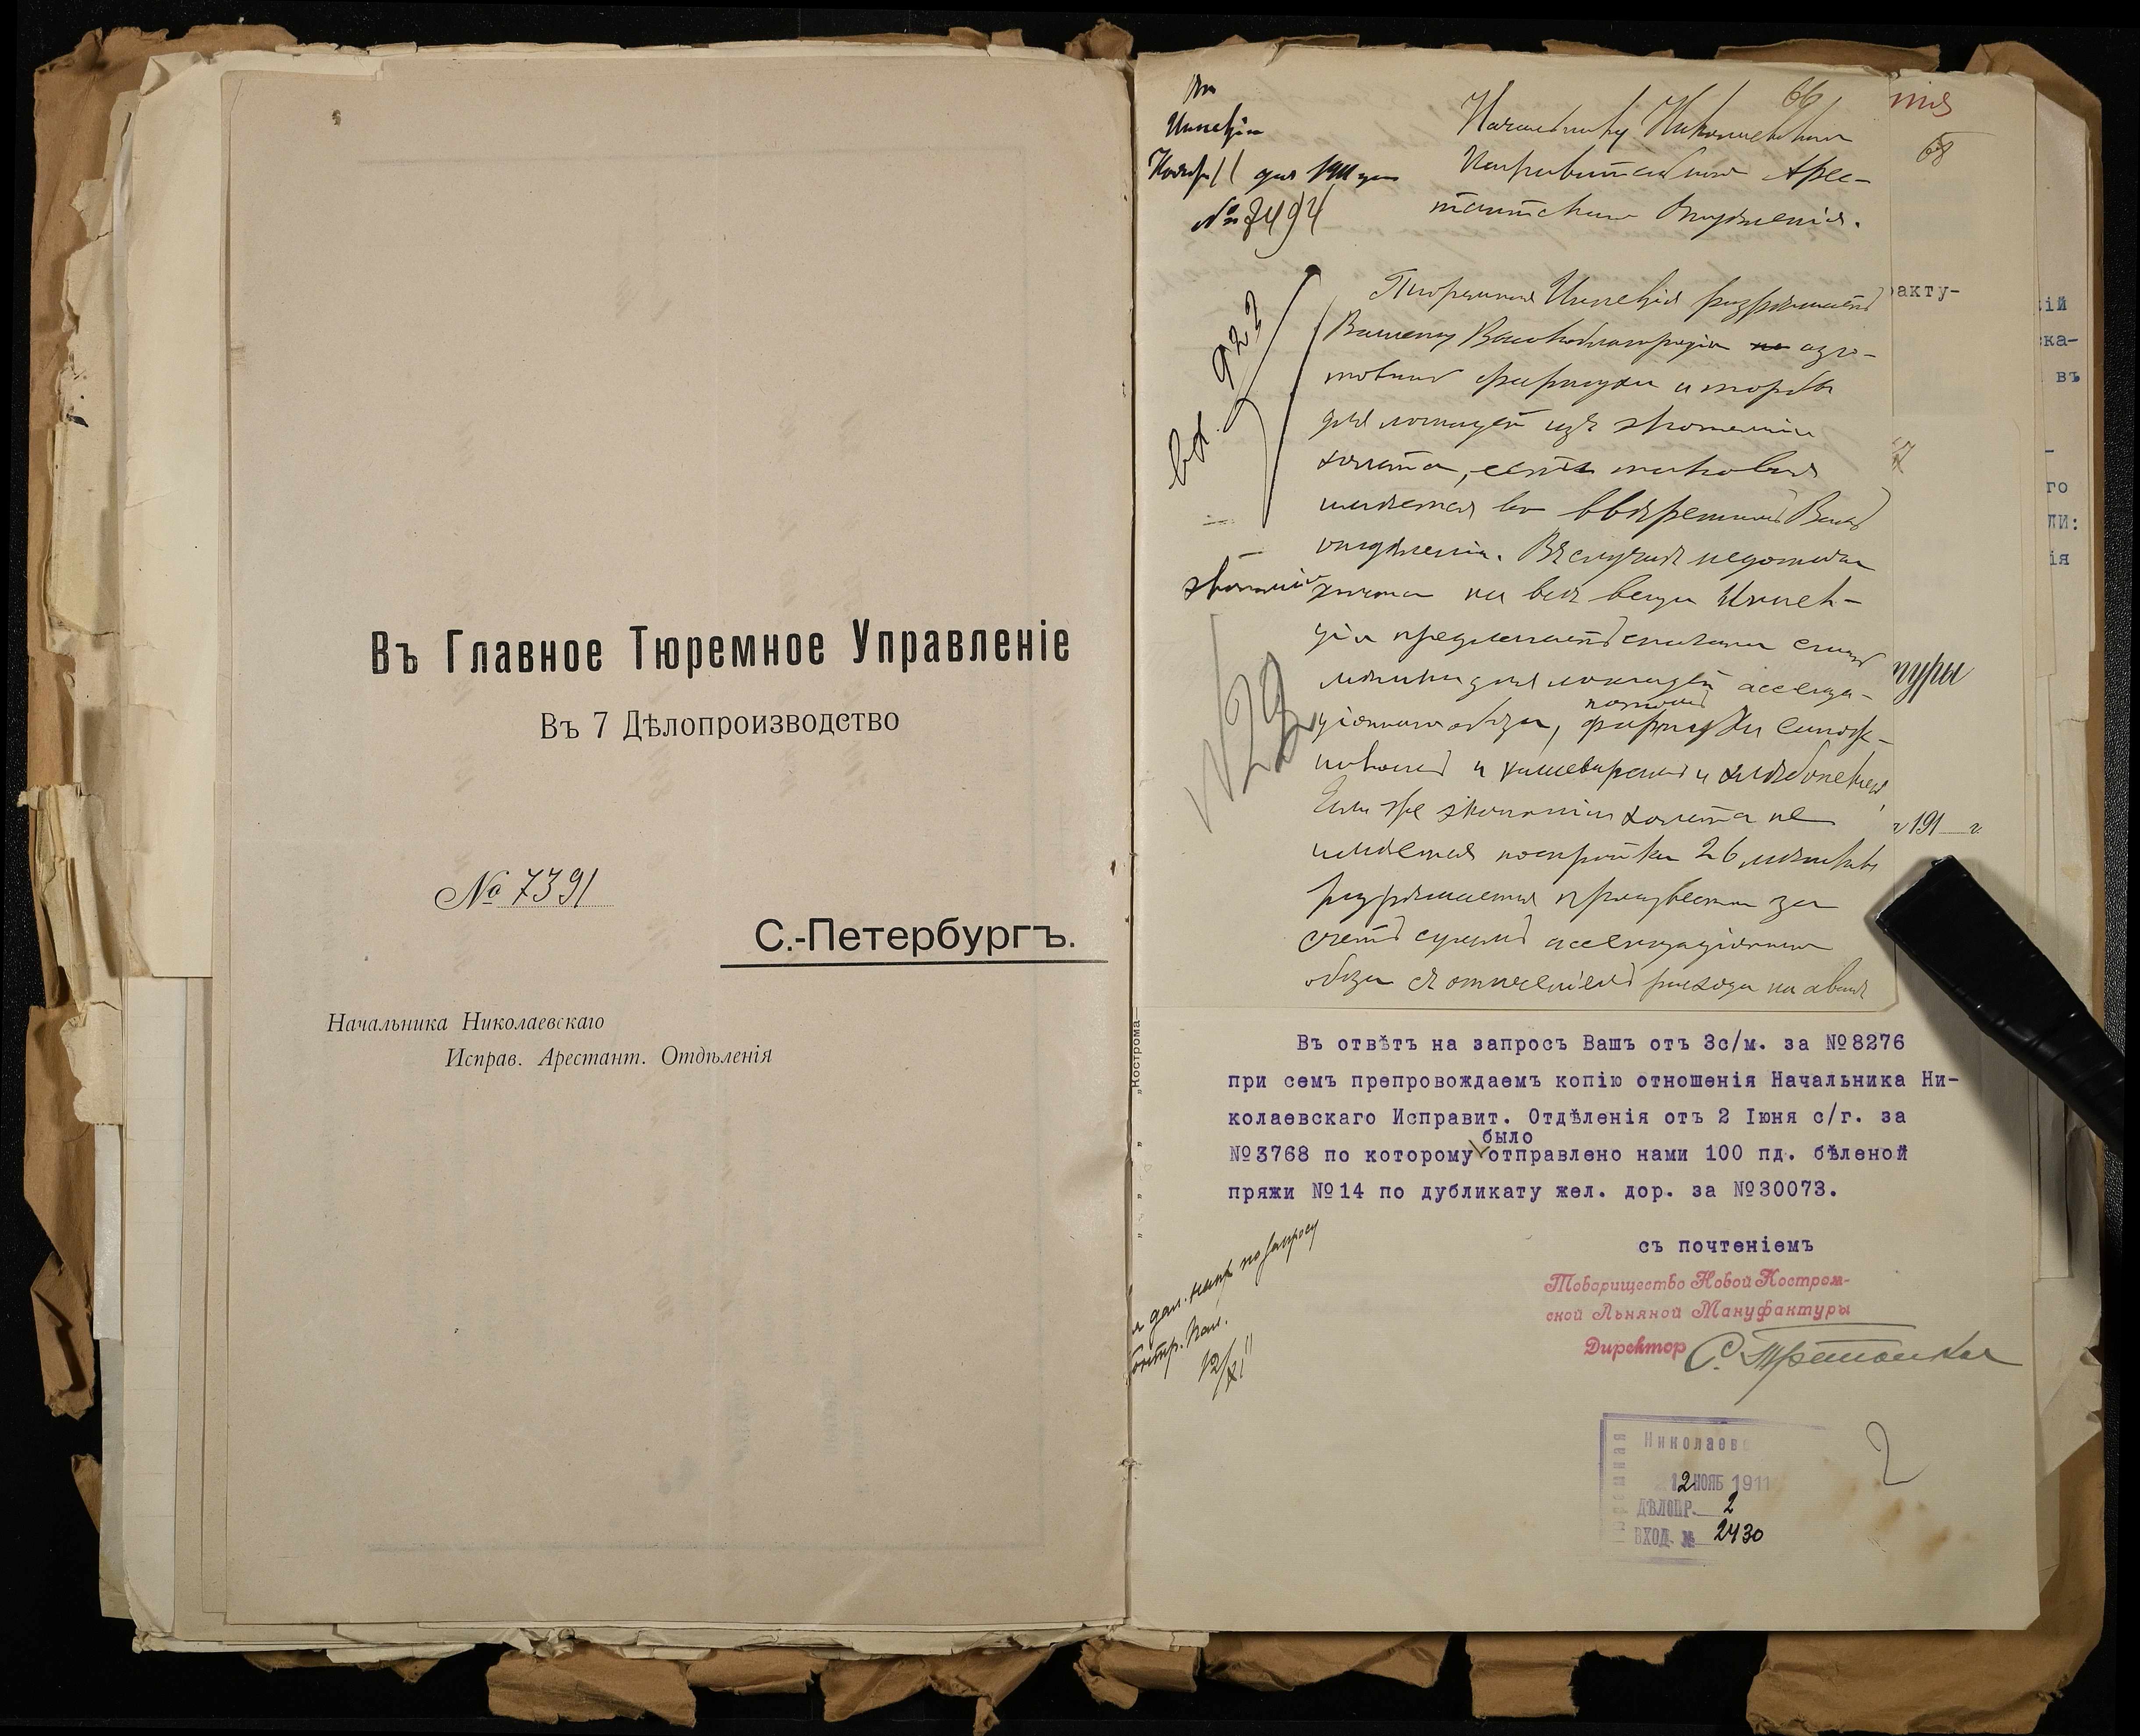 Въ Главное Тюремное Управленіе
Въ 7 Дѣлопроизводство
№ 7391
С.-Петербургъ.
Начальника Николаевскаго
Исправ. Арестант. Отдѣленія
66
Инспекціи
Ноября 11 дня 1911 года
№ 7494
вх. 922
Начальнику Николаевскаго
Исправительнаго Арес-
тантскаго Отдѣленія.
Тюремная Инспекція разрѣшаетъ
Вашему Высокоблагородію изго-
товить фартуки и торбы
для лошадей изъ экономіи
холста, если таковая
имѣется во ввѣренномъ Вамъ
отдѣленіи. Въ случаѣ недостатка
экономіи холста на всѣ вещи Инспек-
ція предлагаетъ сшить
для лошадей ассениза-
ціоннаго обоза, фартуки сапож-
никамъ и кашеварамъ и хлѣбопекамъ,
Если же экономіи холста не
имѣется постройка 26
разрѣшается произвести за
счетъ суммъ ассенизаціоннаго
обоза съ отнесеніемъ расхода на
68
акту-
туры
191 г.
ій
ка-
въ
го
ЛИ:
ія
„Кострома—
Въ отвѣтъ на запросъ Вашъ отъ 3с/м. за №8276
при семъ препровождаемъ копію отношенія Начальника Ни-
колаевскаго Исправит. Отдѣленія отъ 2 Іюня с/г. за
было
№3768 по которому отправлено нами 100 пд. бѣленой
пряжи №14 по дубликату жел. дор. за №30073.
съ почтеніемъ
Товарищество Новой Костром-
ской Льняной Мануфактуры
Директоръ С. Третьяковъ
по запросу
контр. Пал.
12/XI
Николаевс
12 НОЯБ 1911
ДѢЛОПР. 2
ВХОД. № 2430
2